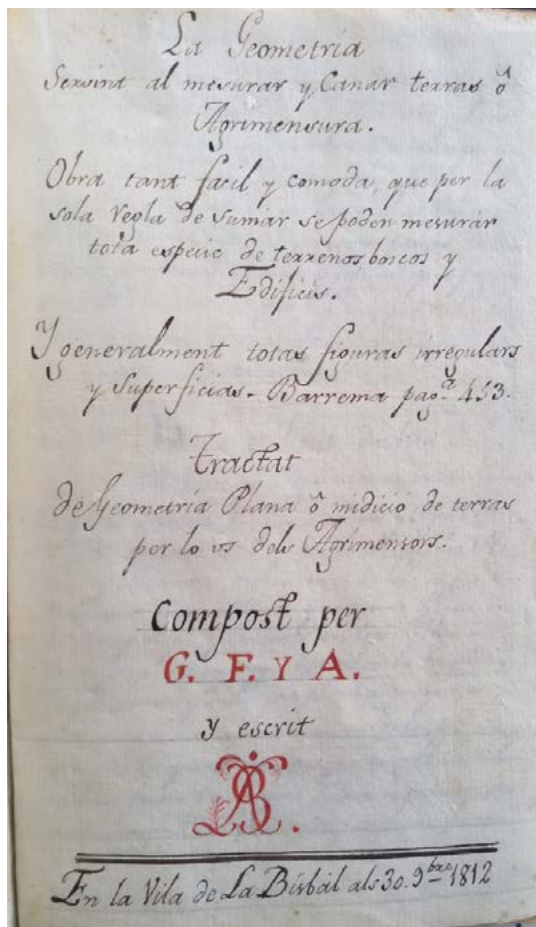 La Geometria
Servint al mesurar y Canar terras ô
Agrimensura.
Obra tant facil y comoda, que per la
sola regla de sumar se poden mesurar
tota especie de terrenos, boscos y
Edificis.
Y generalment totas figuras irregulars
y superficias. Barrema pag.ª 453.
Tractat
de Geometria Plana ô midició de terras
per lo us dels Agrimensors.
Compost per
G. F. Y A.
y escrit
En la Vila de La Bisbal als 30. 9bre 1812